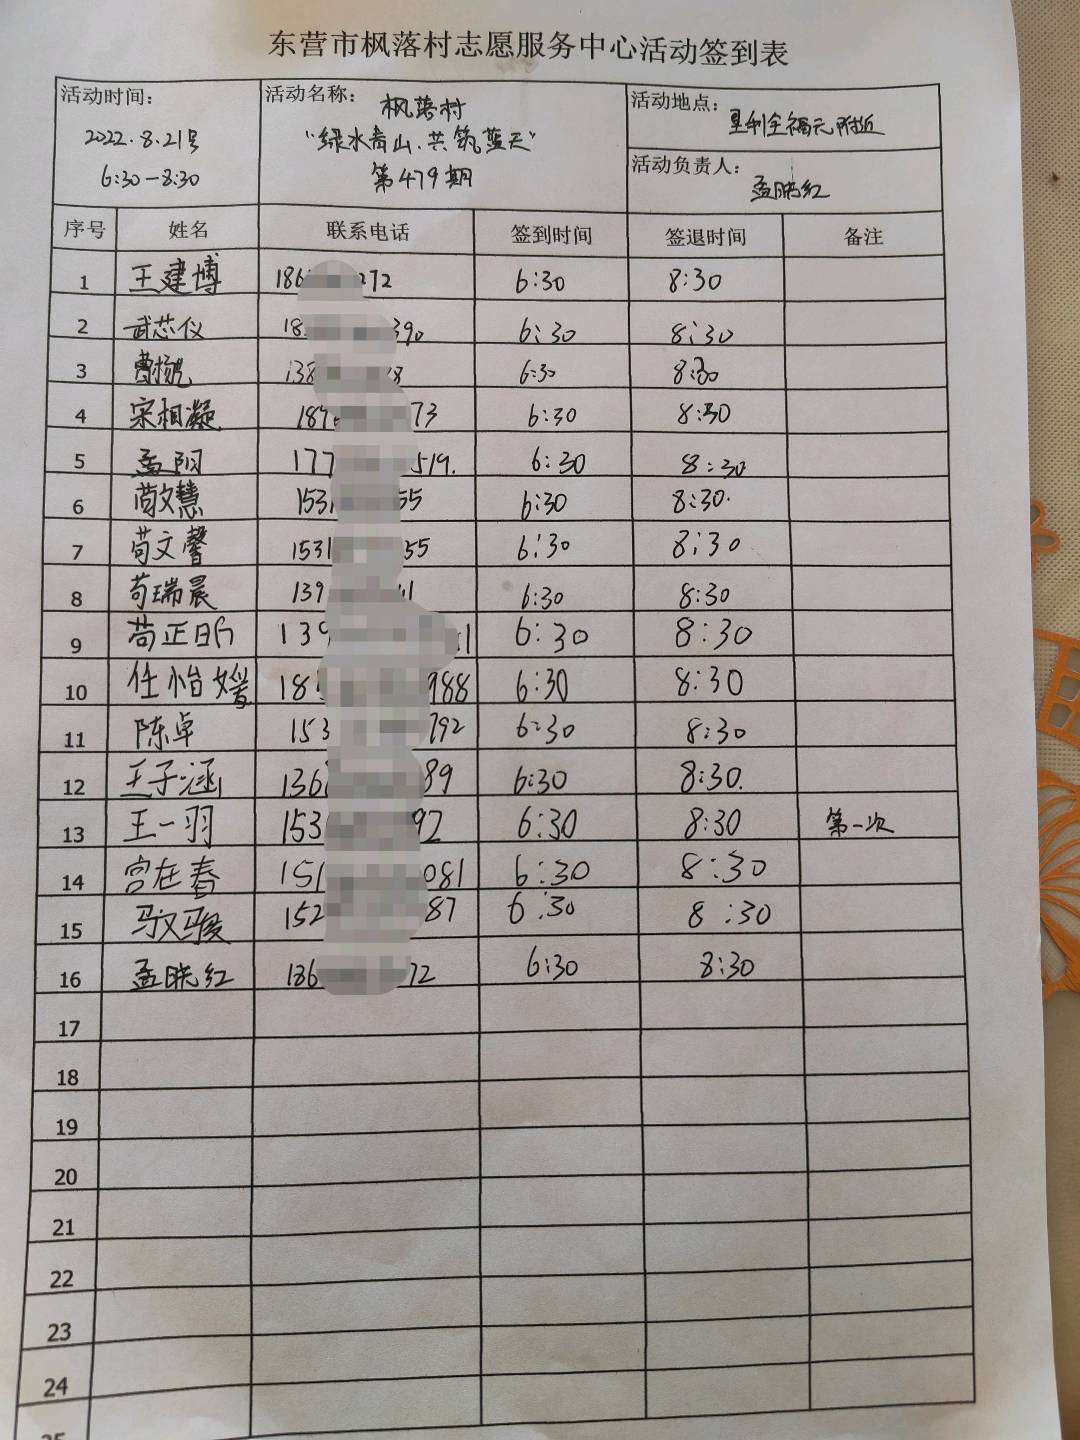 东营市枫落村志愿服务中心活动签到表
活动时间：
2022.8.21号
6:30-8:30
活动名称：
枫落村
“绿水青山、共筑蓝天”
第479期
活动地点：
垦利全福元附近
活动负责人：
孟晓红
序号 姓名 联系电话 签到时间 签退时间 备注
1 王建博 186 272 6:30 8:30
2 武芯仪 18 390 6:30 8:30
3 曹 138 8 6:30 8:30
4 宋相凝 189 73 6:30 8:30
5 孟阳 177 519. 6:30 8:30
6 苟文慧 1531 55 6:30 8:30.
7 苟文馨 1531 55 6:30 8:30
8 苟瑞晨 139 41 6:30 8:30
9 苟正昕 139 1 6:30 8:30
10 任怡媛 18 988 6:30 8:30
11 陈卓 153 792 6:30 8:30
12 王子涵 136 89 6:30 8:30.
13 王一羽 153 92 6:30 8:30 第一次
14 宫在春 151 081 6:30 8:30
15 马汉骏 152 87 6:30 8:30
16 孟晓红 186 72 6:30 8:30
17
18
19
20
21
22
23
24